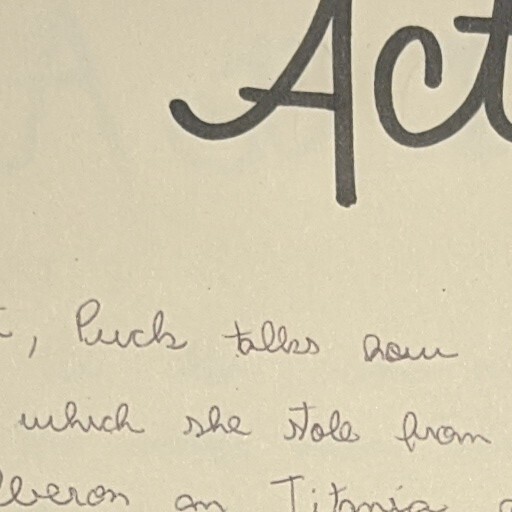 Act
, Puck talks how
which she stole from
beron an Titania